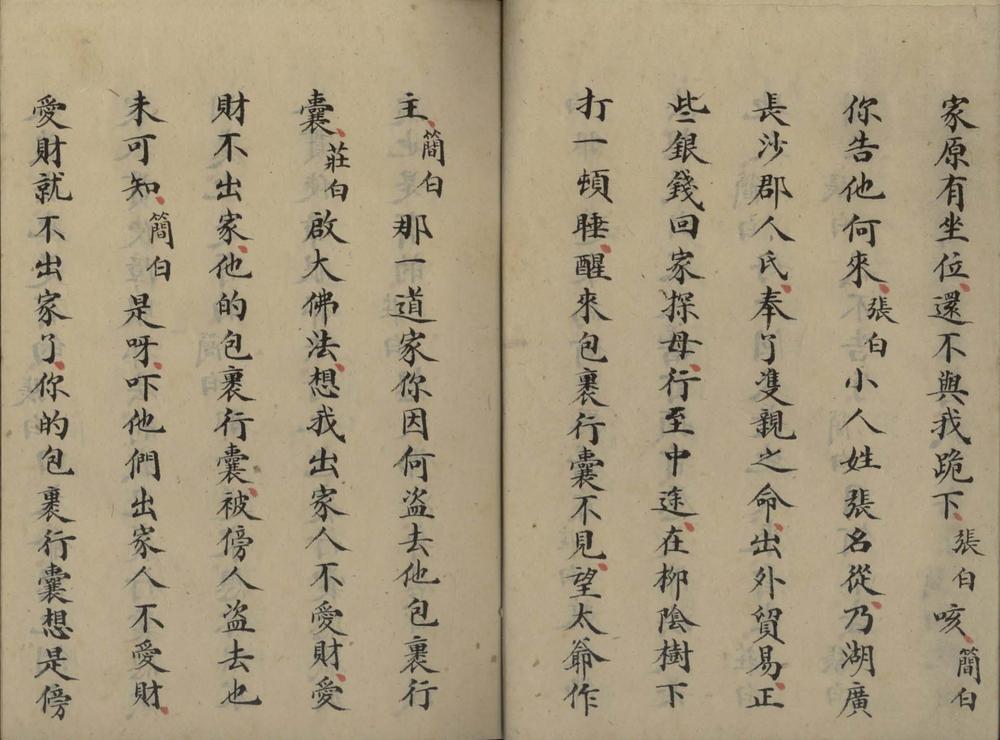 家原有坐位還不與我跪下張白咳簡白
你告他何來張白小人姓張名從乃湖廣
長沙郡人氏奉了雙親之命出外貿易正
些銀錢回家探母行至中途在柳陰樹下
打一頓睡醒來包裹行囊不見望太爺作
主簡白那一道家你因何盗去他包裹行
囊莊白啟大佛法想我出家人不愛財愛
財不出家他的包裹行囊被傍人盗去也
未可知簡白是呀吓他們出家人不愛財
愛財就不出家了你的包裹行囊想是傍